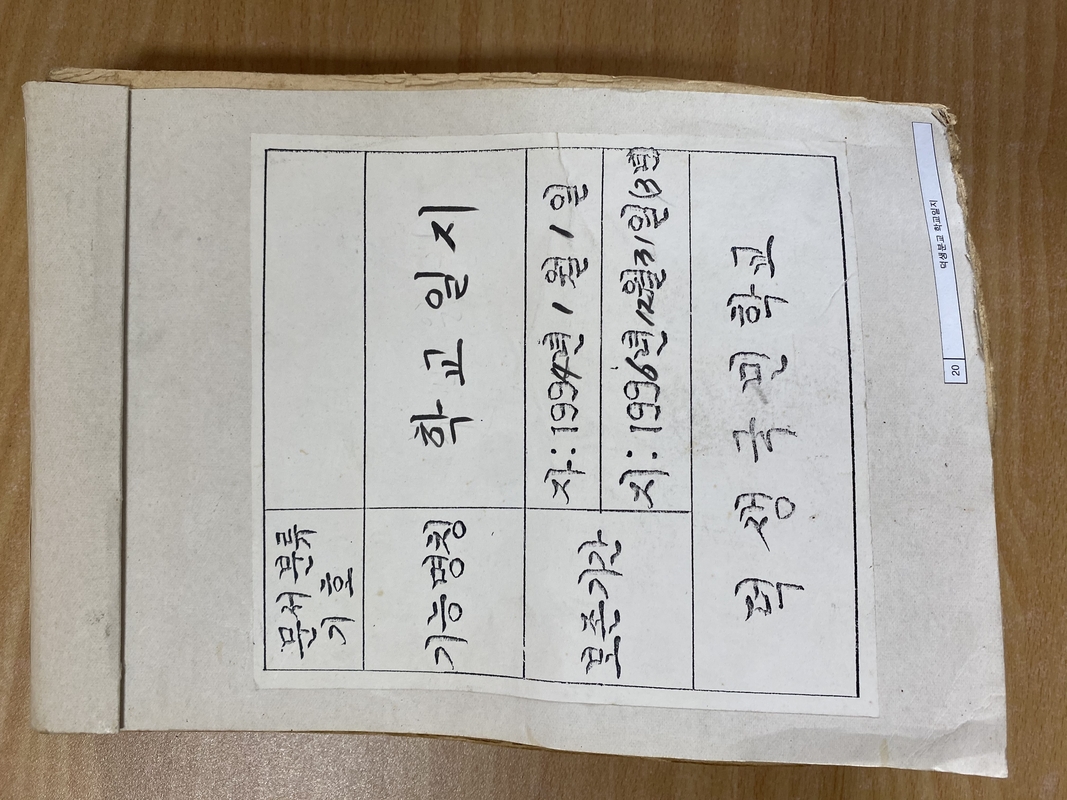 문서분류
기호
기능명칭
학교일지
보존기간
자:1994년 1월 1일
지:1996년 12월 31일(3년)
덕생국민학교
20
덕생분교 학교일지